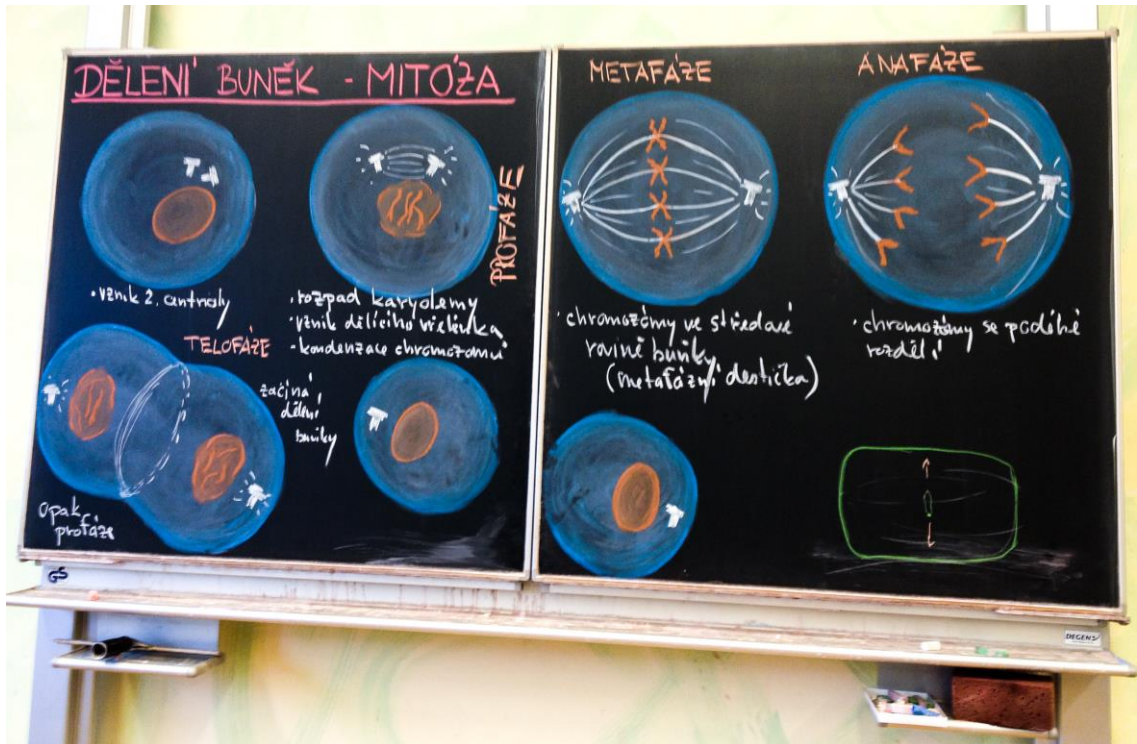 DĚLENÍ BUNĚK - MITÓZA
PROFÁZE
• vznik 2. centrioly
• rozpad karyolemy
• vznik dělícího vřeténka
• kondenzace chromozomů
TELOFÁZE
začíná
dělení
buňky
Opak
profáze
METAFÁZE
• chromozómy ve středové
rovině buňky
(metafázní destička)
ANAFÁZE
• chromozómy se podélně
rozdělí
GS
DEGEN